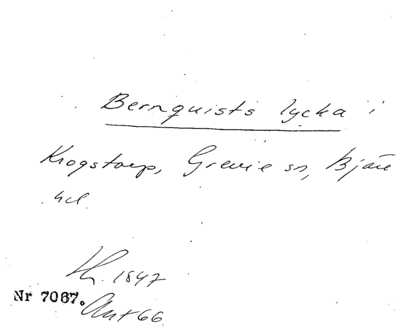 Bernquists lycka i
Krogstorp, Grevie sn, Bjäre
hd.
1847
Nr 7067.